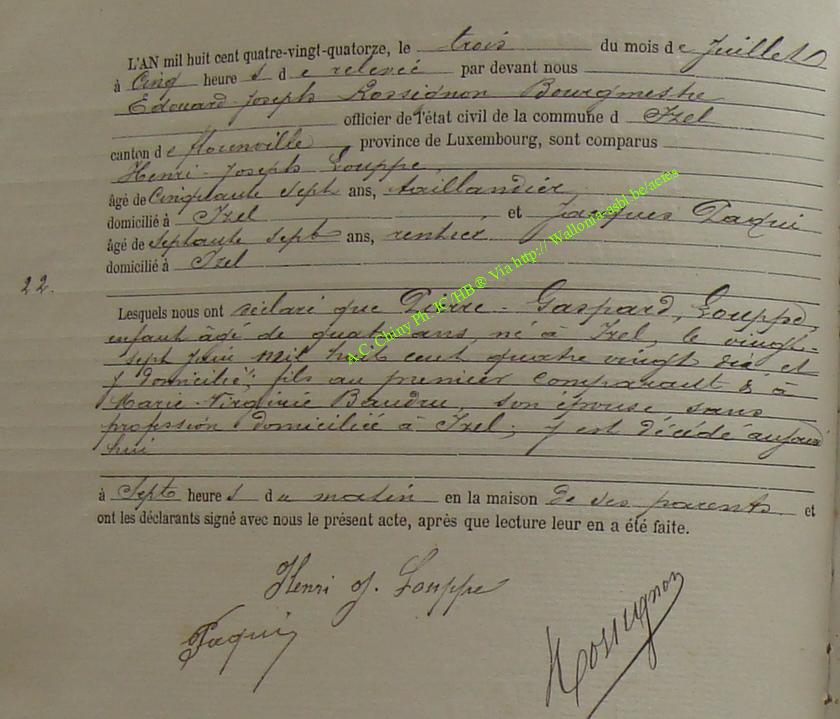 L'AN mil huit cent quatre-vingt-quatorze, le trois du mois de Juillet
à Cinq heures de relevée par devant nous
Edouard-Joseph Rossignon Bourgmestre
officier de l'état civil de la commune d Izel
canton de florenville, province de Luxembourg, sont comparus
Henri-Joseph Louppe,
âgé de Cinquante sept ans, taillandier
domicilié à Izel et Jacques Paquis
âgé de septante sept ans, rentier
domicilié à Izel
22.
Lesquels nous ont déclaré que Pierre-Gaspard, Louppe,
enfant âgé de quatre ans, né à Izel, le vingt-
sept Juin mil huit cent quatre vingt dix et
y domicilié; fils du premier comparant & à
Marie-Virginie Baudru, son épouse sans
profession domiciliée à Izel; y est décédé aujourd
hui
à Sept heures du matin en la maison de ses parents et
ont les déclarants signé avec nous le présent acte, après que lecture leur en a été faite.
Henri J. Louppe
Paquis
Rossignon
A.C. Chiny Ph. JC/HB® Via http://Wallonia-asbl.be/actes